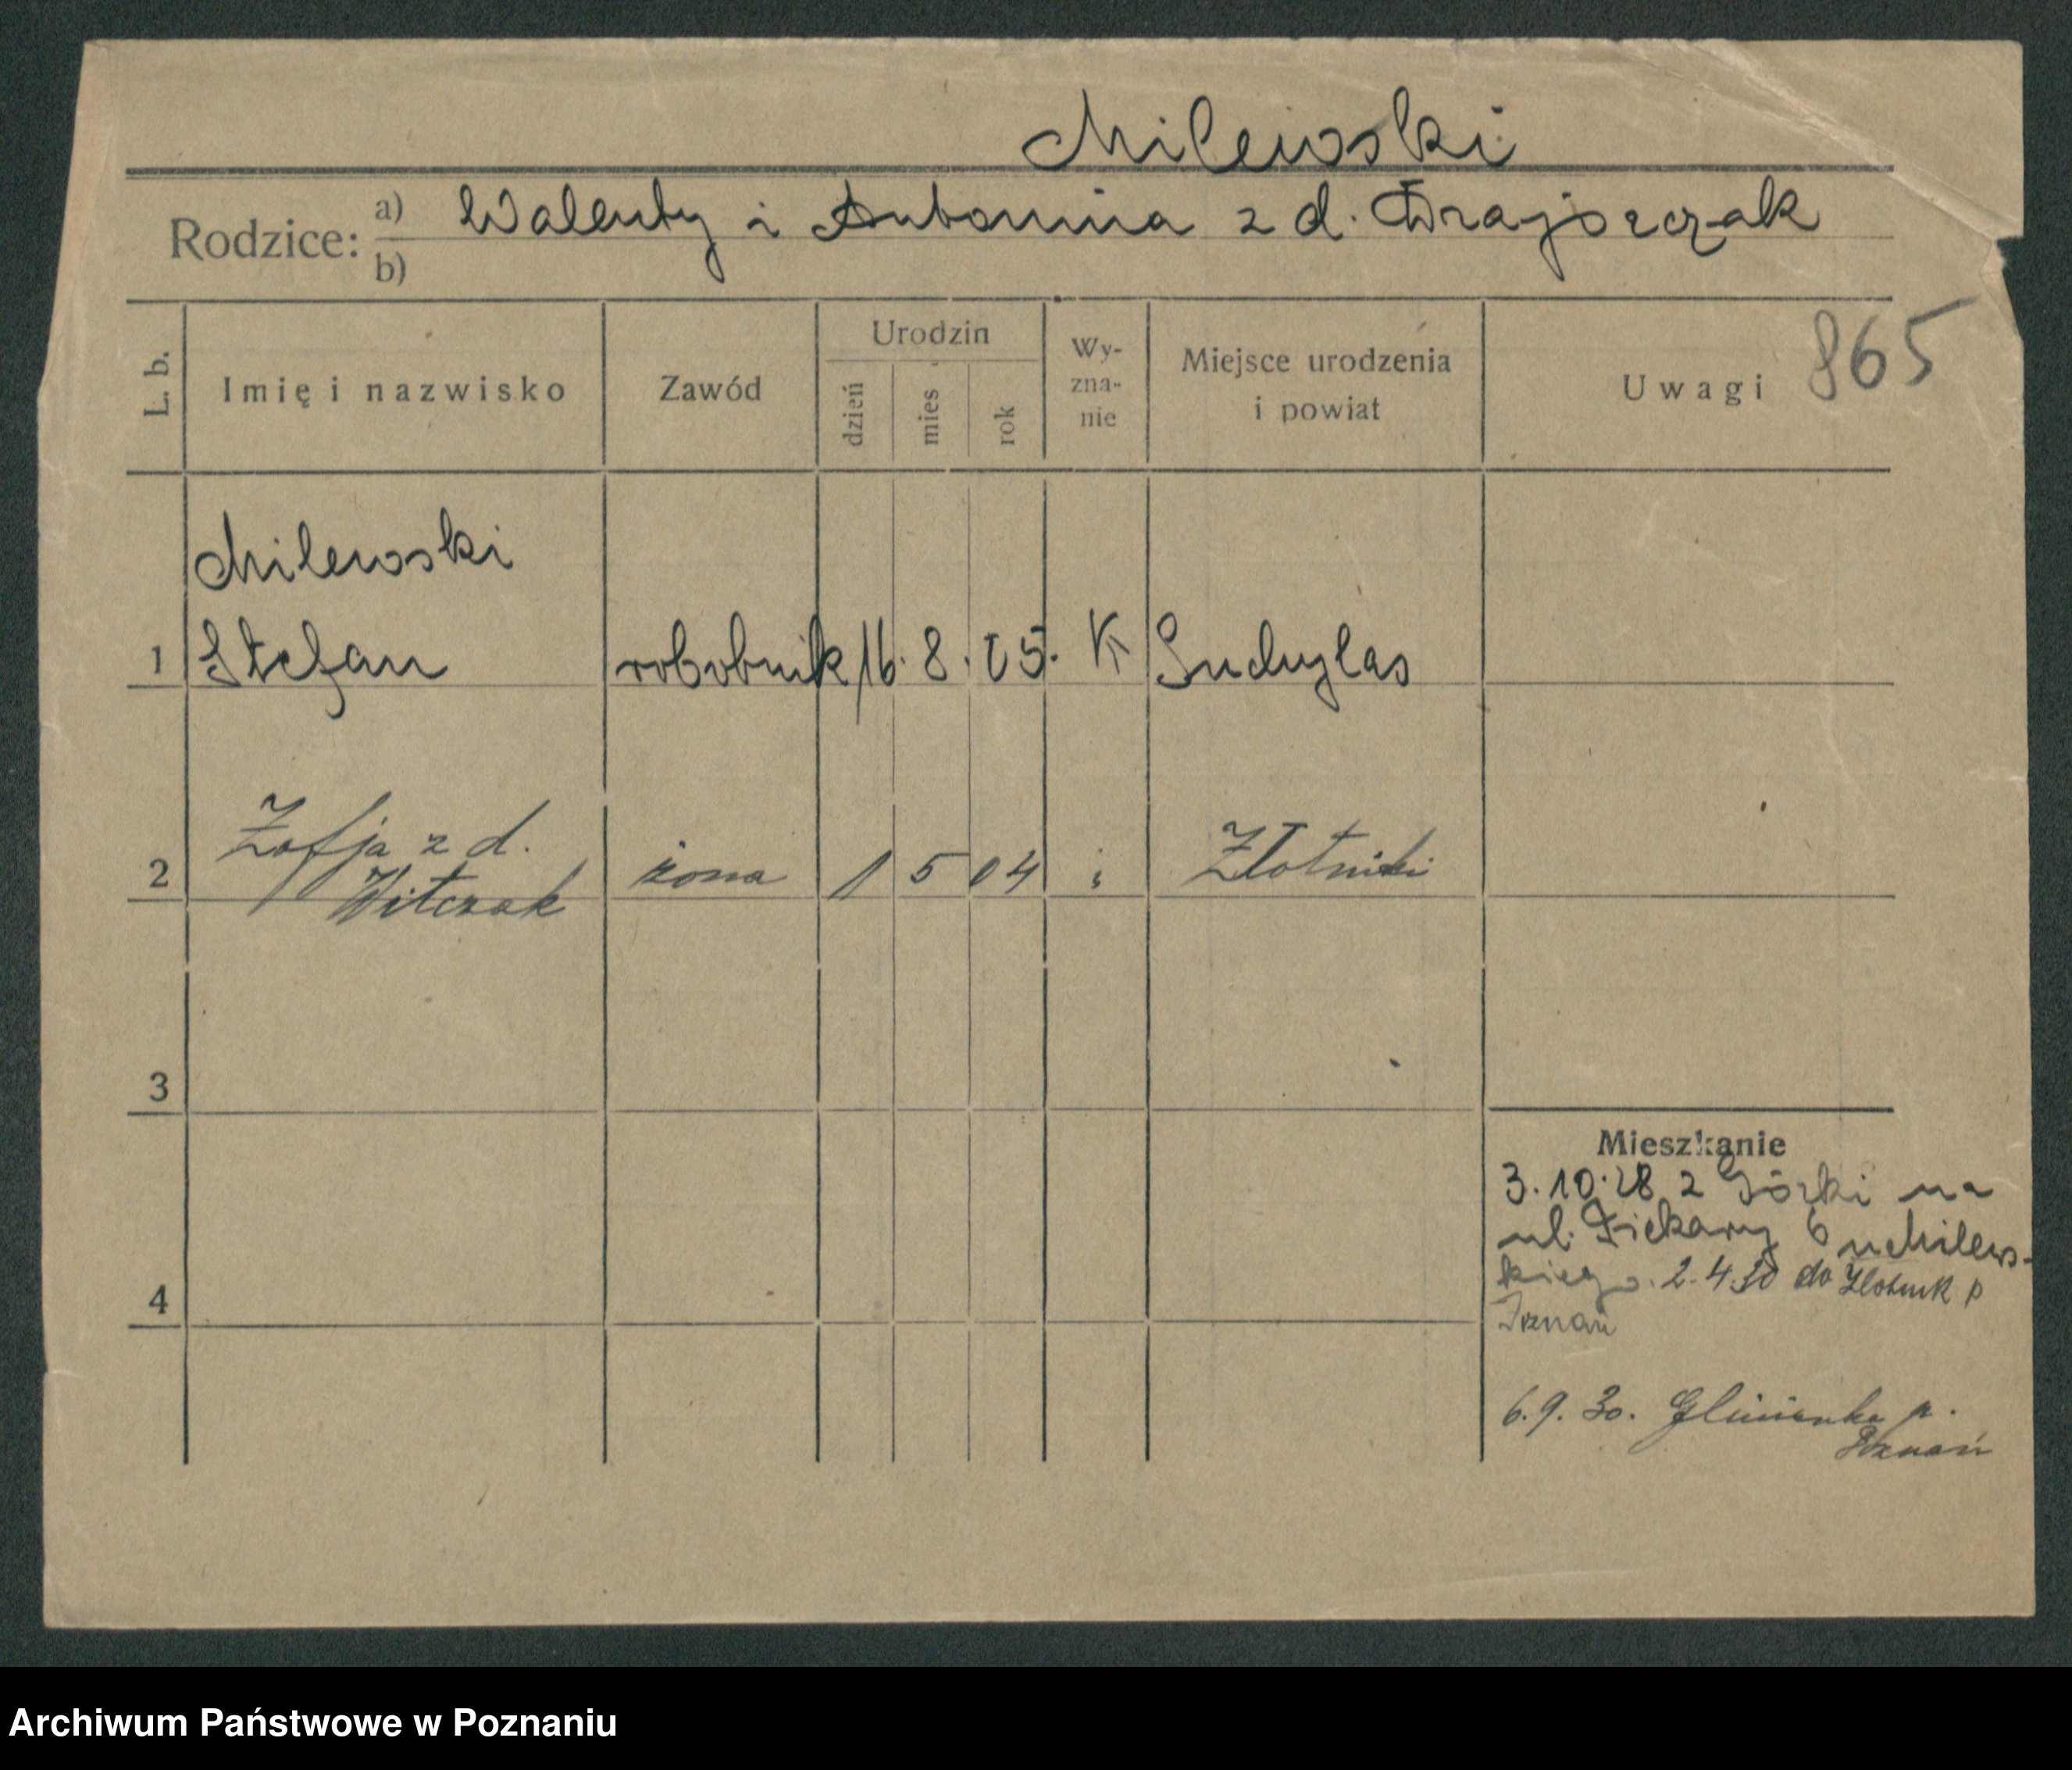 Milewski
Rodzice: a) Walenty i Antonina z d.
b)
L. b. Imię i nazwisko Zawód Urodzin dzień mies rok Wy-zna-nie Miejsce urodzenia i powiat Uwagi 865
Milewski
1 Stefan robotnik 16. 8. 05. K Suchylas
2 Zofja z d. Witczak żona 1 5 04 " Złotniki
3
Mieszkanie
3.10.28 z Górki na
ul. Piekary 6 u Milews-
kiego. 2.4.30 do Złotnik p
Poznań
4
6.9.30. Glinienka p.
Poznań
Archiwum Państwowe w Poznaniu